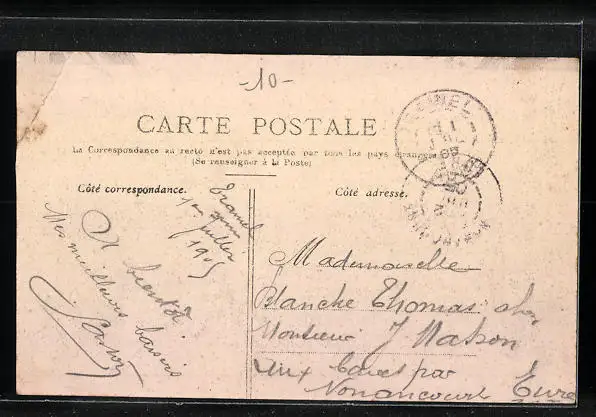 -10-
CARTE POSTALE
La Correspondance au recto n'est pas acceptée par tous les pays étrangers
(Se renseigner à la Poste)
Côté correspondance.
Côté adresse.
1er juillet
1905
A bientôt.
Mes meilleurs baisers
Mademoiselle
Blanche Thomas chez
Monsieur J Masson
aux caves par
Nonancourt Eure